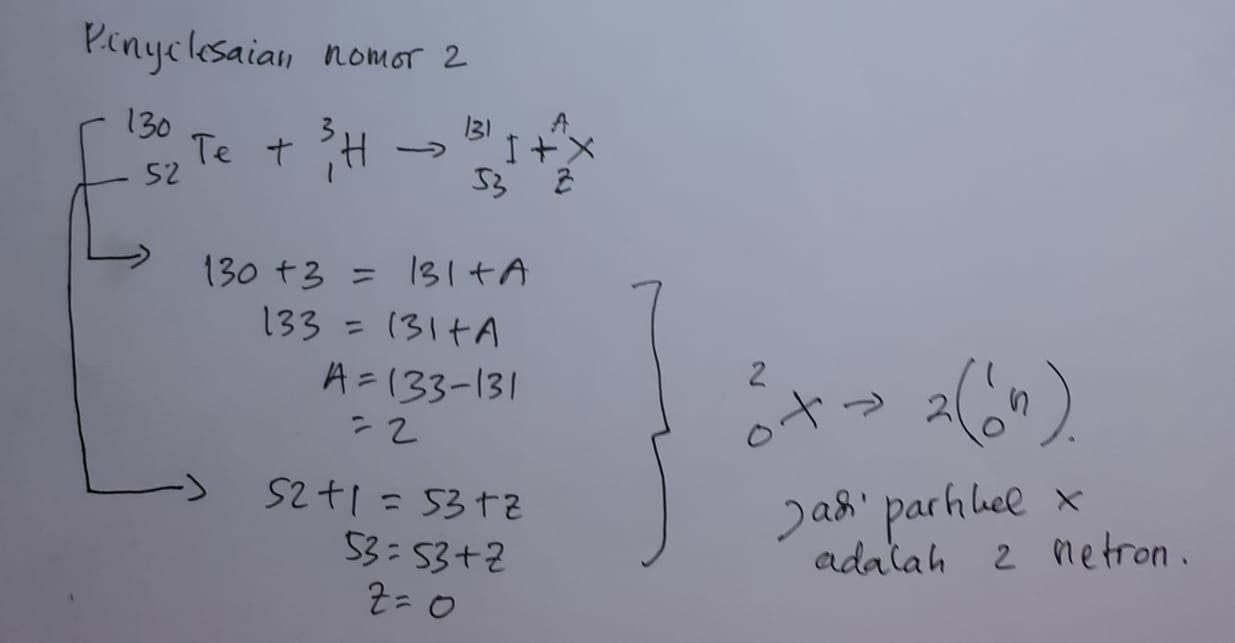 Penyelesaian nomor 2
¹³⁰₅₂Te + ³₁H → ¹³¹₅₃I + ᴬ_ZX
130 + 3 = 131 + A
133 = 131 + A
A = 133 - 131
= 2
52 + 1 = 53 + Z
53 = 53 + Z
Z = 0
²₀X → 2(¹₀n).
Jadi partikel X
adalah 2 netron.